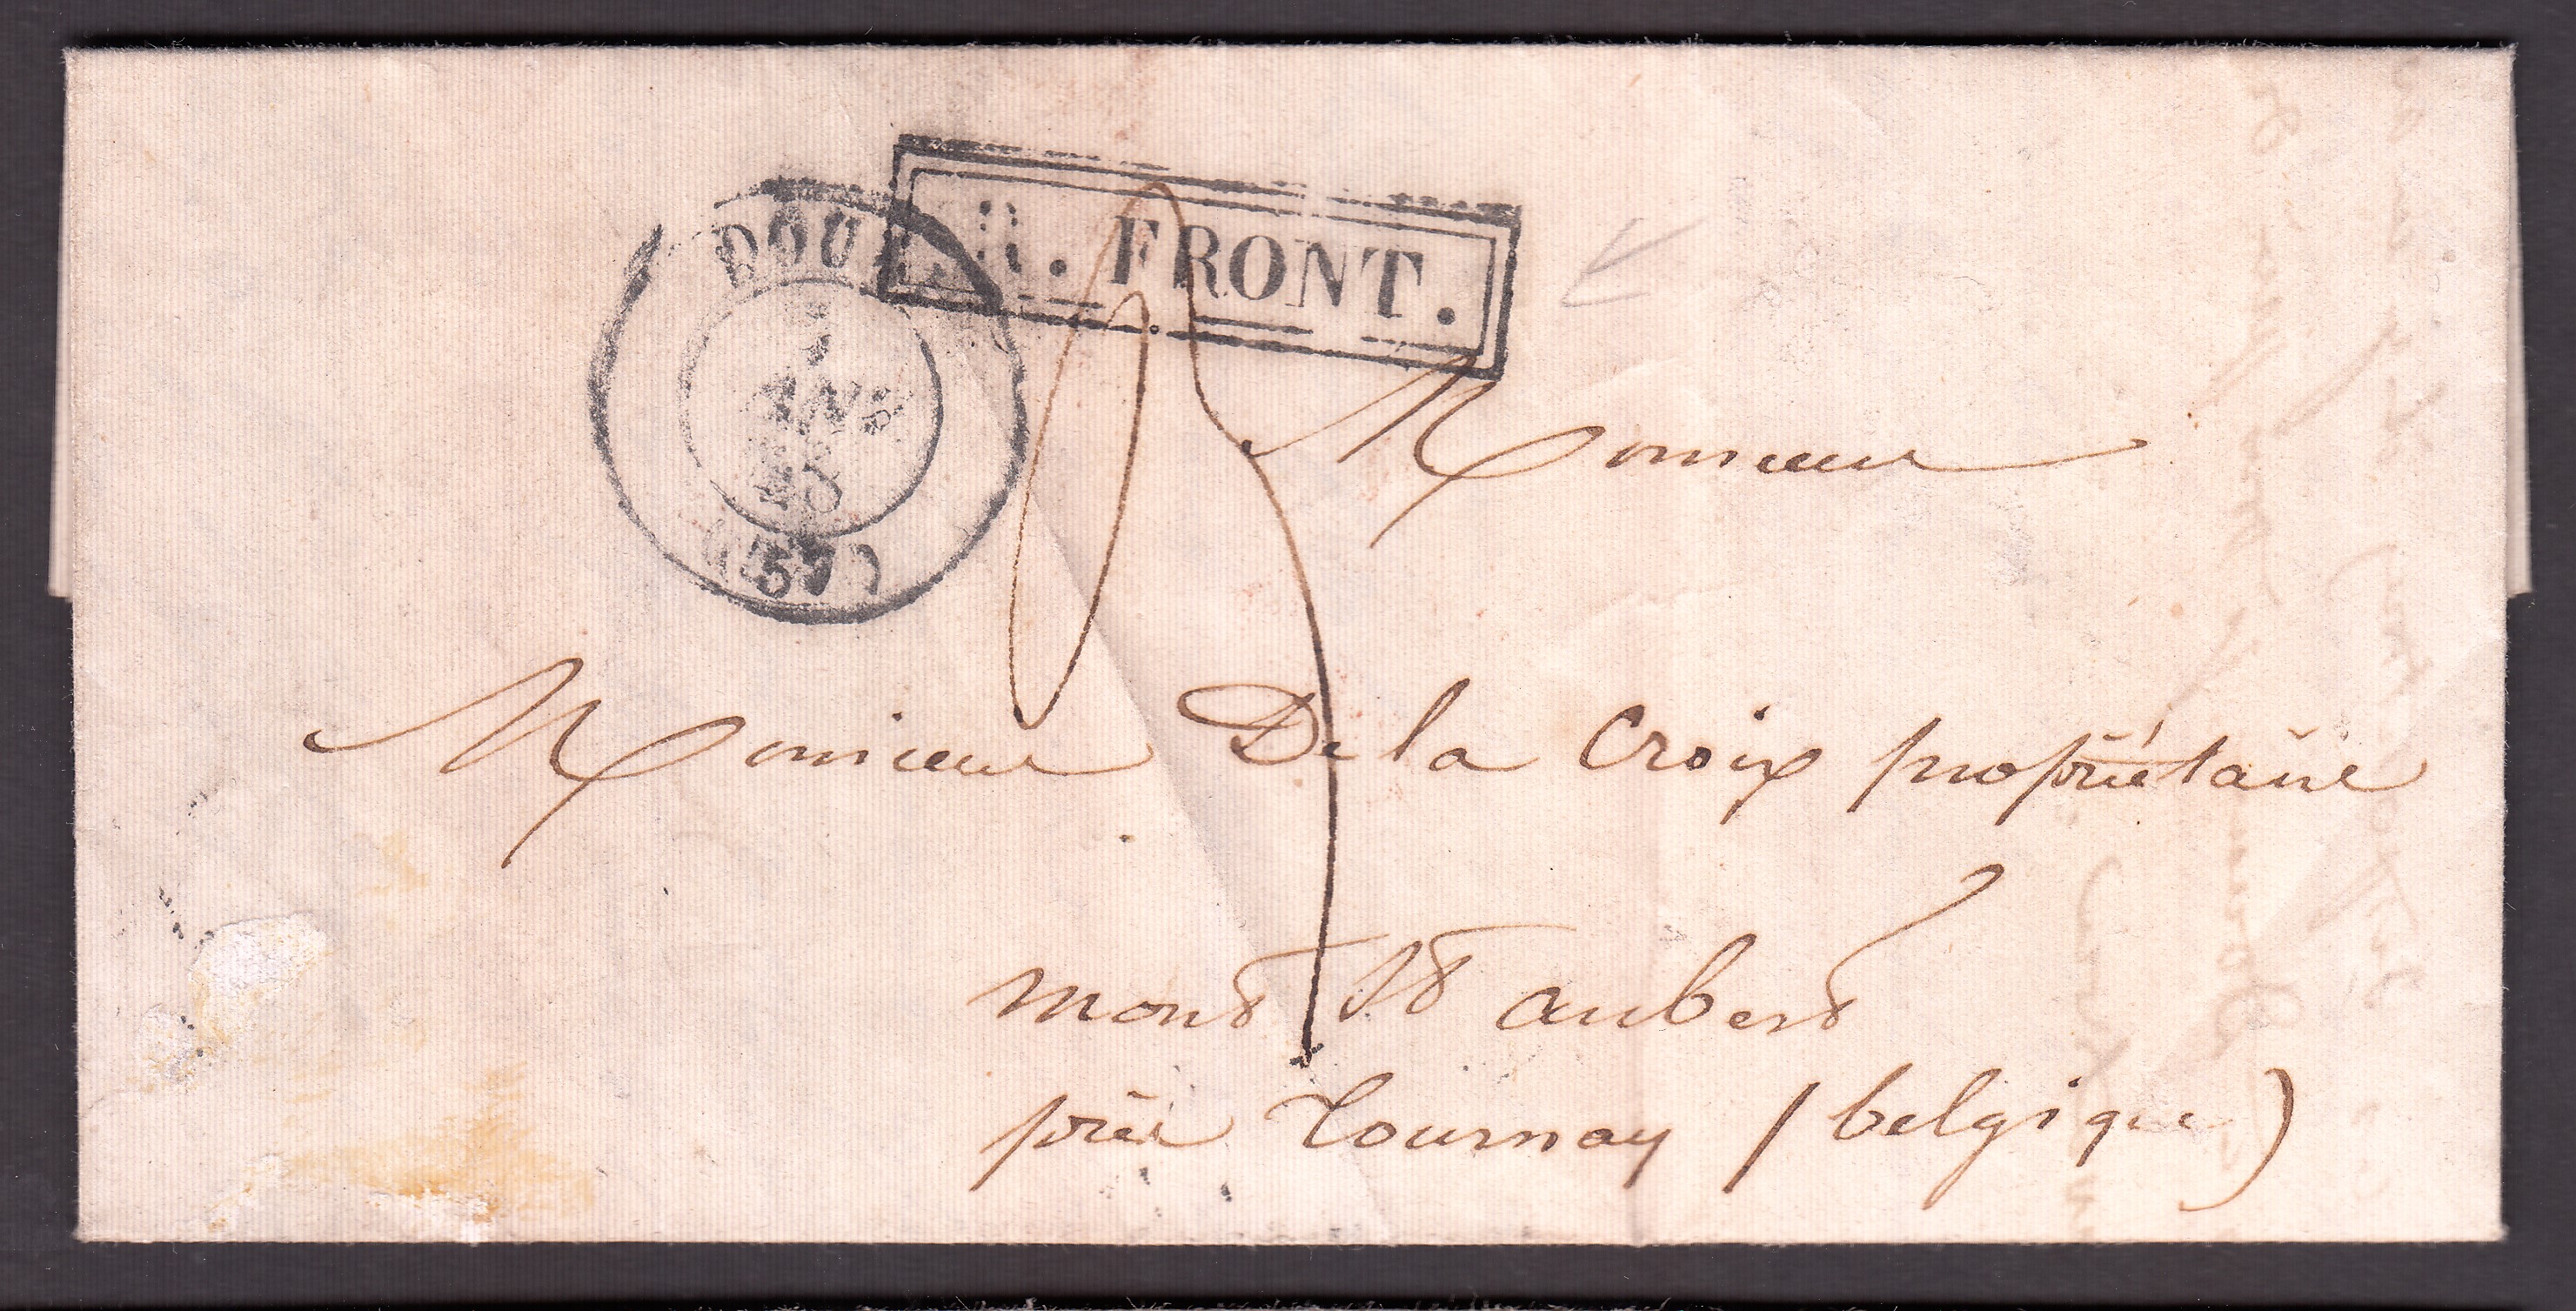 DOUAI
R. FRONT.
JANV
48
(57)
Monsieur
Monsieur De la Croix propriétaire
mont St aubert
près Tournay (belgique)